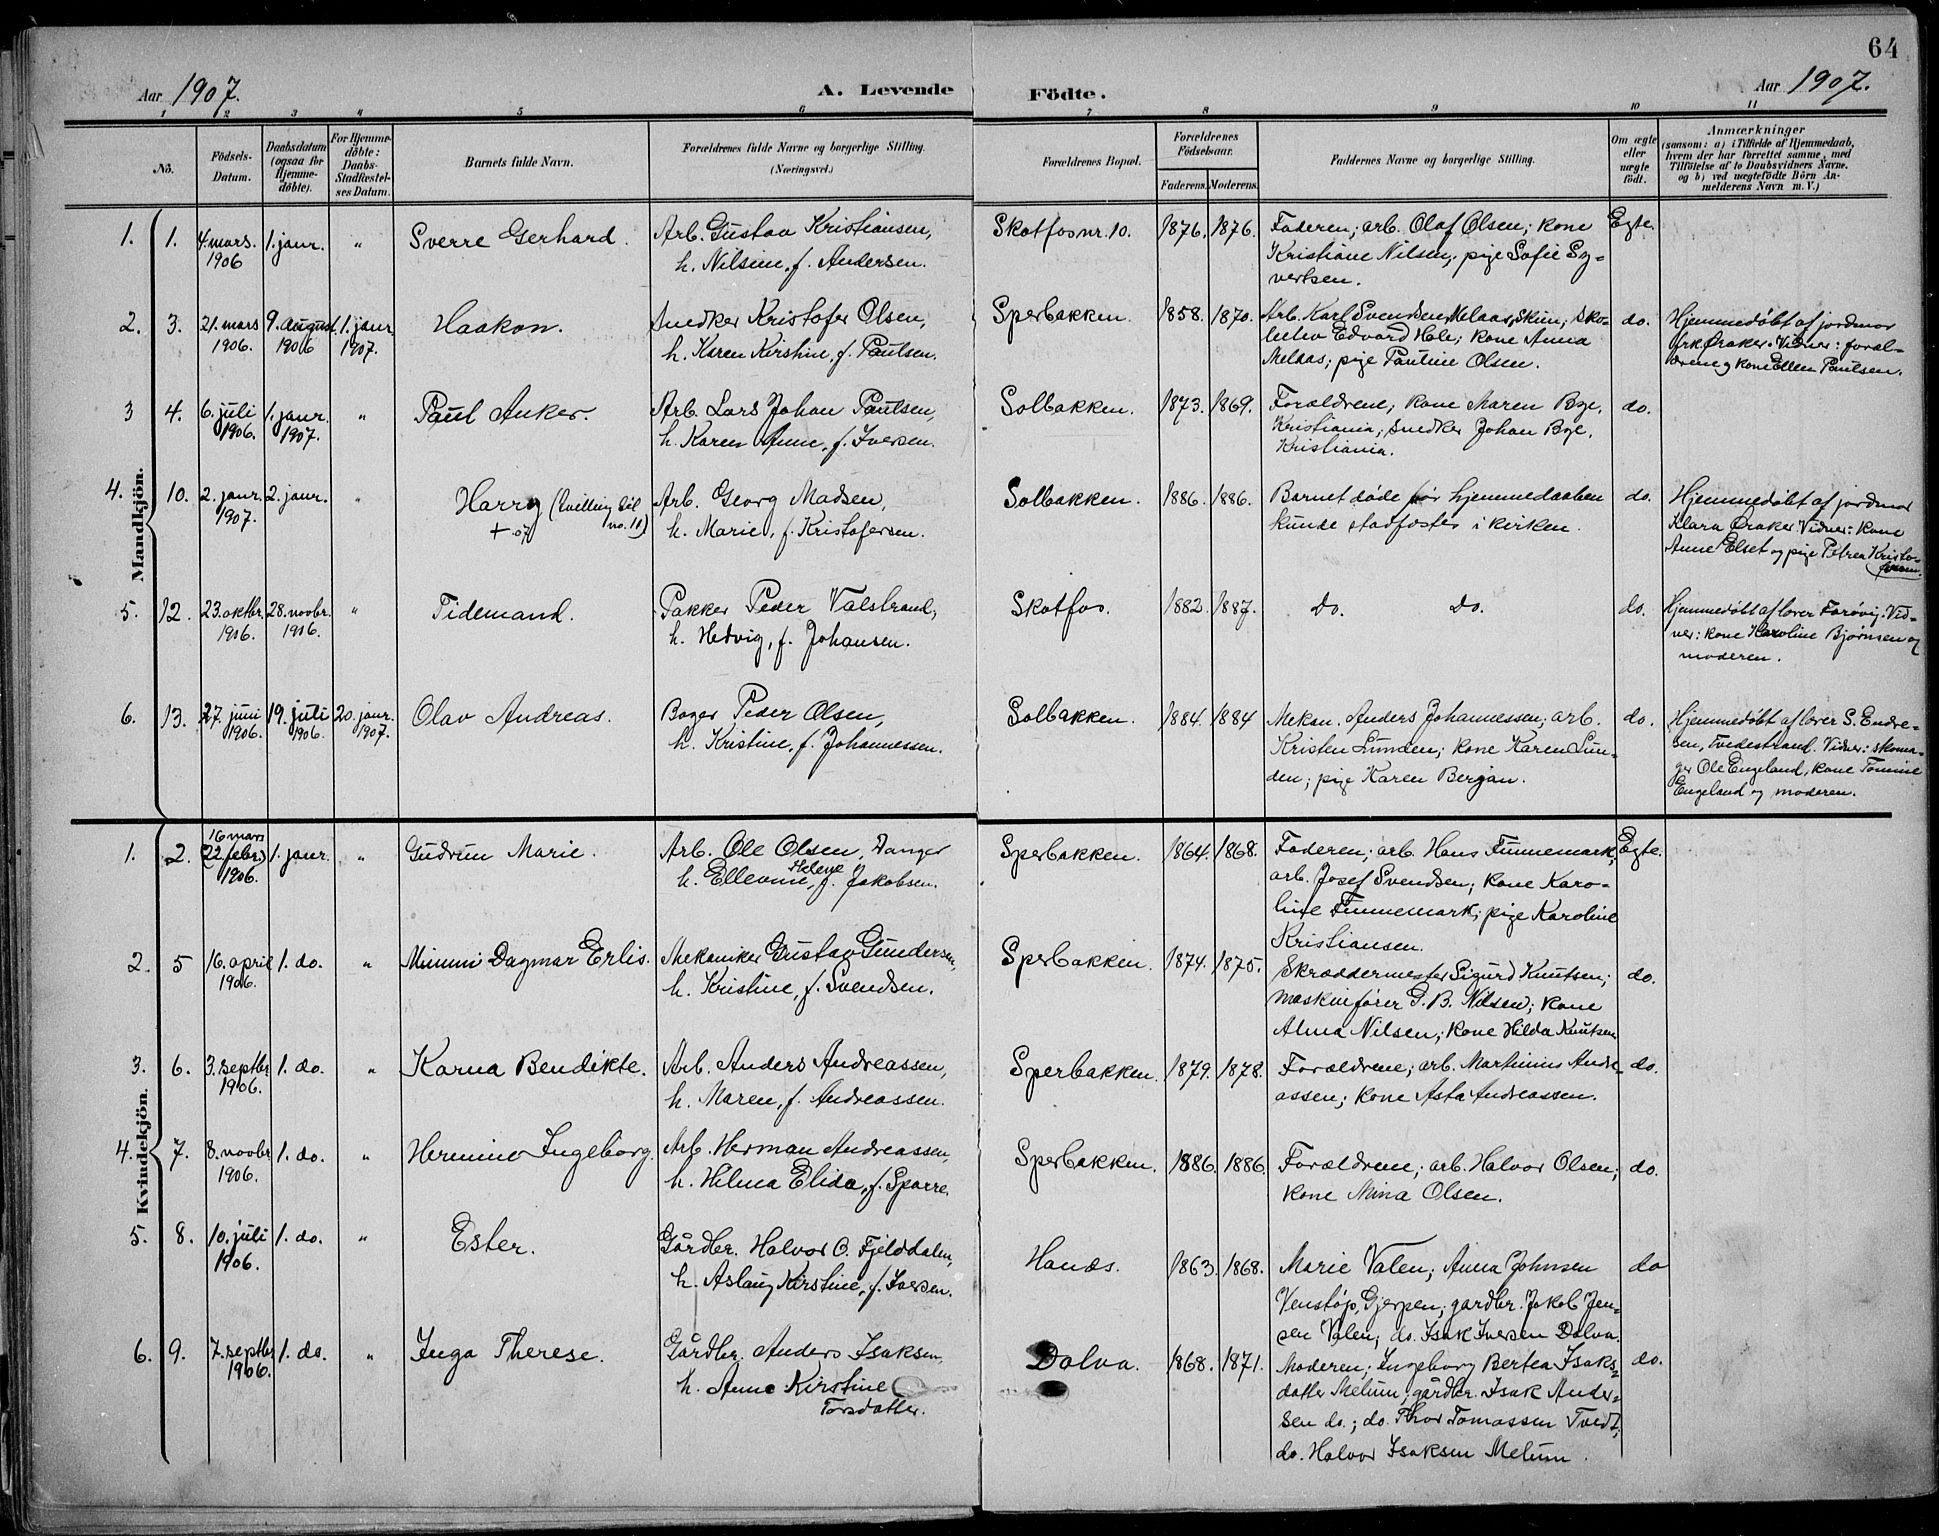 64
Aar 1907. A. Levende Födte. Aar 1907.
1 2 3 4 5 6 7 8 9 10 11
No. Födsels-Datum. Daabsdatum (ogsaa for Hjemme-döbte). For Hjemme-döbte: Daabs-Stadfæstel-ses Datum. Barnets fulde Navn. Forældrenes fulde Navne og borgerlige Stilling. (Næringsvei.) Forældrenes Bopæl. Forældrenes Födselsaar. Faderens. Moderens. Faddernes Navne og borgerlige Stilling. Om ægte eller uægte födt. Anmærkninger (saasom: a) i Tilfælde af Hjemmedaab, hvem der har forrettet samme, med Tilföielse af to Daabsvidners Navne. og b) ved uægtefödte Börn An-melderens Navn m. V.)
Mandkjön.
1. 1. 4. mars. 1906 1. janr. " Sverre Gerhard. Arb. Gustav Kristiansen, Skotfos nr. 10. 1876. 1876. Faderen; arb. Olaf Olsen; kone Egte.
h. Nilsine, f. Andersen. Kristiane Nilsen; pige Sofie Sy=
vertsen.
2. 3. 21. mars 1906. 9. august 1906 1. janr 1907. Haakon. Snedker Kristofer Olsen, Sperbakken. 1858. 1870. Arb. Karl Svendsen Melaas, Skien; sko- do. Hjemmedøbt af jordmor
h. Karen Kirstine, f. Paulsen. Edvard Hole; kone Anna frk Øraker. Vidner: foræl=
Melaas; pige Pauline Olsen. drene og kone Ellen Paulsen.
3 4. 6. juli 1906. 1. janr. 1907. " Paul Anker. Arb. Lars Johan Paulsen, Solbakken. 1873. 1869. Forældrene; kone Maren Bye, do.
h. Karen Anne, f. Iversen. Kristiania; snedker Johan Bye,
Kristiania.
4. 10. 2. janr. 1907. 2. janr. " Harry (tvilling til no. 11) Arb. Georg Madsen, Solbakken. 1886. 1886. Barnet døde før hjemmedaaben do. Hjemmedøbt af jordmor
+ 07 h. Marie, f. Kristofersen. kunde stadfæstes i kirken. Klara Øraker. Vidner: kone
Anne Elset og pige Petrea Kristo=
fersen.
5. 12. 23. oktbr. 1906. 28. novbr. 1906. " Tidemand. Pakker Peder Valstrand, Skotfos. 1882. 1887. do. do. do. Hjemmedøbt af lærer Farøvig. Vid=
h. Hedvig, f. Johansen. ner: kone Karoline Bjørnsen og
moderen.
6. 13. 27. juni 1906. 19. juli 1906. 20. janr. 1907. Olav Andreas. Bager Peder Olsen, Solbakken. 1884. 1884 Mekan. Anders Johannessen; arb. do. Hjemmedøbt af lærer S. Endre=
h. Kristine, f. Johannessen. Kristen Lunden; kone Karen Lun= sen, Tvedestrand. Vidner: skoma=
den; pige Karen Bergan. ger Ole Engeland, kone Tomine
Engeland og moderen.
Kvindekjön.
1. 2. 16 mars (22 febr.) 1906. 1. janr. " Gudrun Marie. Arb. Ole Olsen, Vanger Sperbakken. 1864. 1868. Faderen; arb. Hans Finnemark; Egte.
h. Ellevine Helene, f. Jakobsen. arb. Josef Svendsen; kone Karo=
line Finnemark; pige Karoline
Kristiansen.
2. 5 16. april 1906. 1. do. " Mimmi Dagmar Erlis. Mekaniker Gustav Gundersen, Sperbakken. 1874. 1875. Skræddermester Sigurd Knutsen; do.
h. Kristine, f. Svendsen. maskinfører G. B. Nilsen; kone
Alma Nilsen; kone Hilda Knutsen
3. 6. 3. septbr 1906. 1. do. " Karna Bendikte. Arb. Anders Andreassen, Sperbakken. 1879. 1878. Forældrene; arb. Martinius Andre= do.
h. Maren, f. Andreassen. assen; kone Asta Andreassen.
4. 7. 8. novbr 1906. 1. do. " Hermine Ingeborg. Arb. Herman Andreassen, Sperbakken. 1886. 1886. Forældrene; arb. Halvor Olsen; do.
h. Helma Elida, f. Sparre. kone Mina Olsen.
5. 8. 10. juli 1906. 1. do. " Ester. Gårdbr. Halvor O. Fjelddalen, Hanæs. 1863. 1868. Marie Valen; Anna Johnsen do
h. Aslaug Kirstine, f. Iversen. Venstøp, Gjerpen; gardbr. Jakob Jen=
sen Valen; do. Isak Iversen Dalva.
6. 9. 7. septbr 1906. 1. do. " Inga Therese. Gårdbr. Anders Isaksen, Dalva. 1868. 1871. Moderen; Ingeborg Bertea Isaks= do.
h. Anne Kirstine datter Melum; gårdbr. Isak Ander=
Torsdatter. sen do.; do. Thor Tomassen Tvedt;
do. Halvor Isaksen Melum.